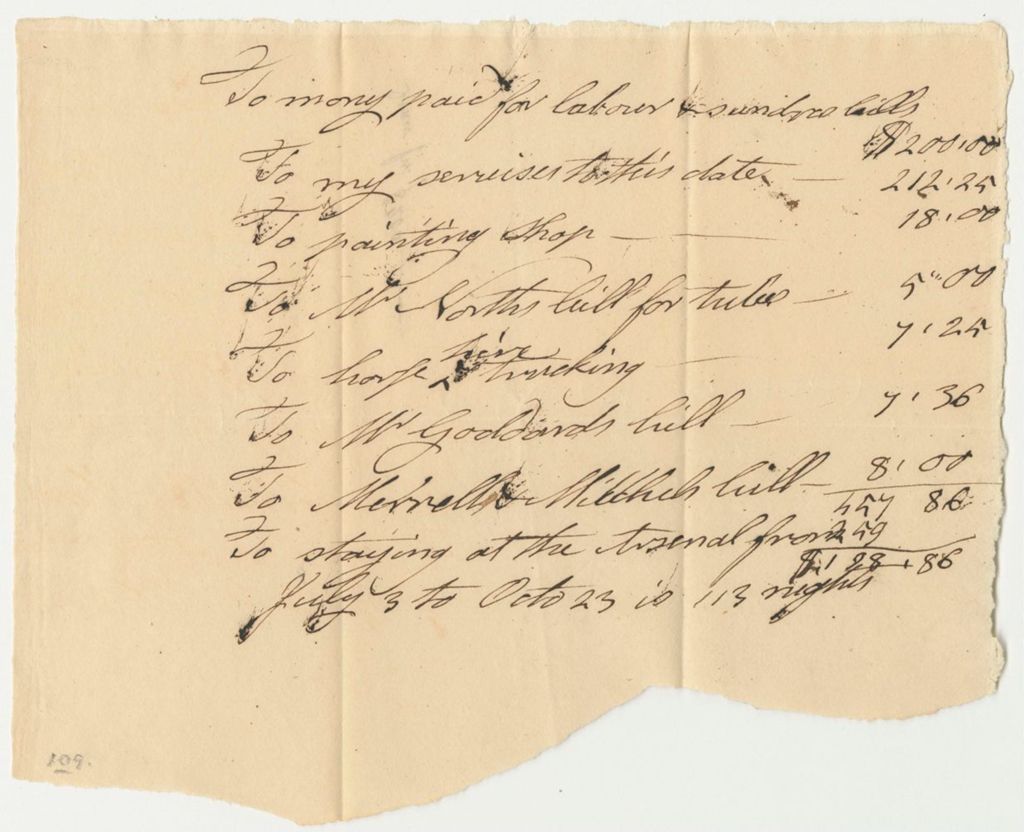 To mony paid for labour & sundres bills
$200.00
To my serviises to this date — 212.25
To painting shop — 18.00
To Mr Norths bill for tubes — 5"00
To horse hire & trucking — 7.25
To Mr Goddards bill — 7.36
To Merrell & Mitchels bill — 8.00
457 86
To staying at the Arsenal from
259
86
July 3 to Octo 23 is 113 nights
109.